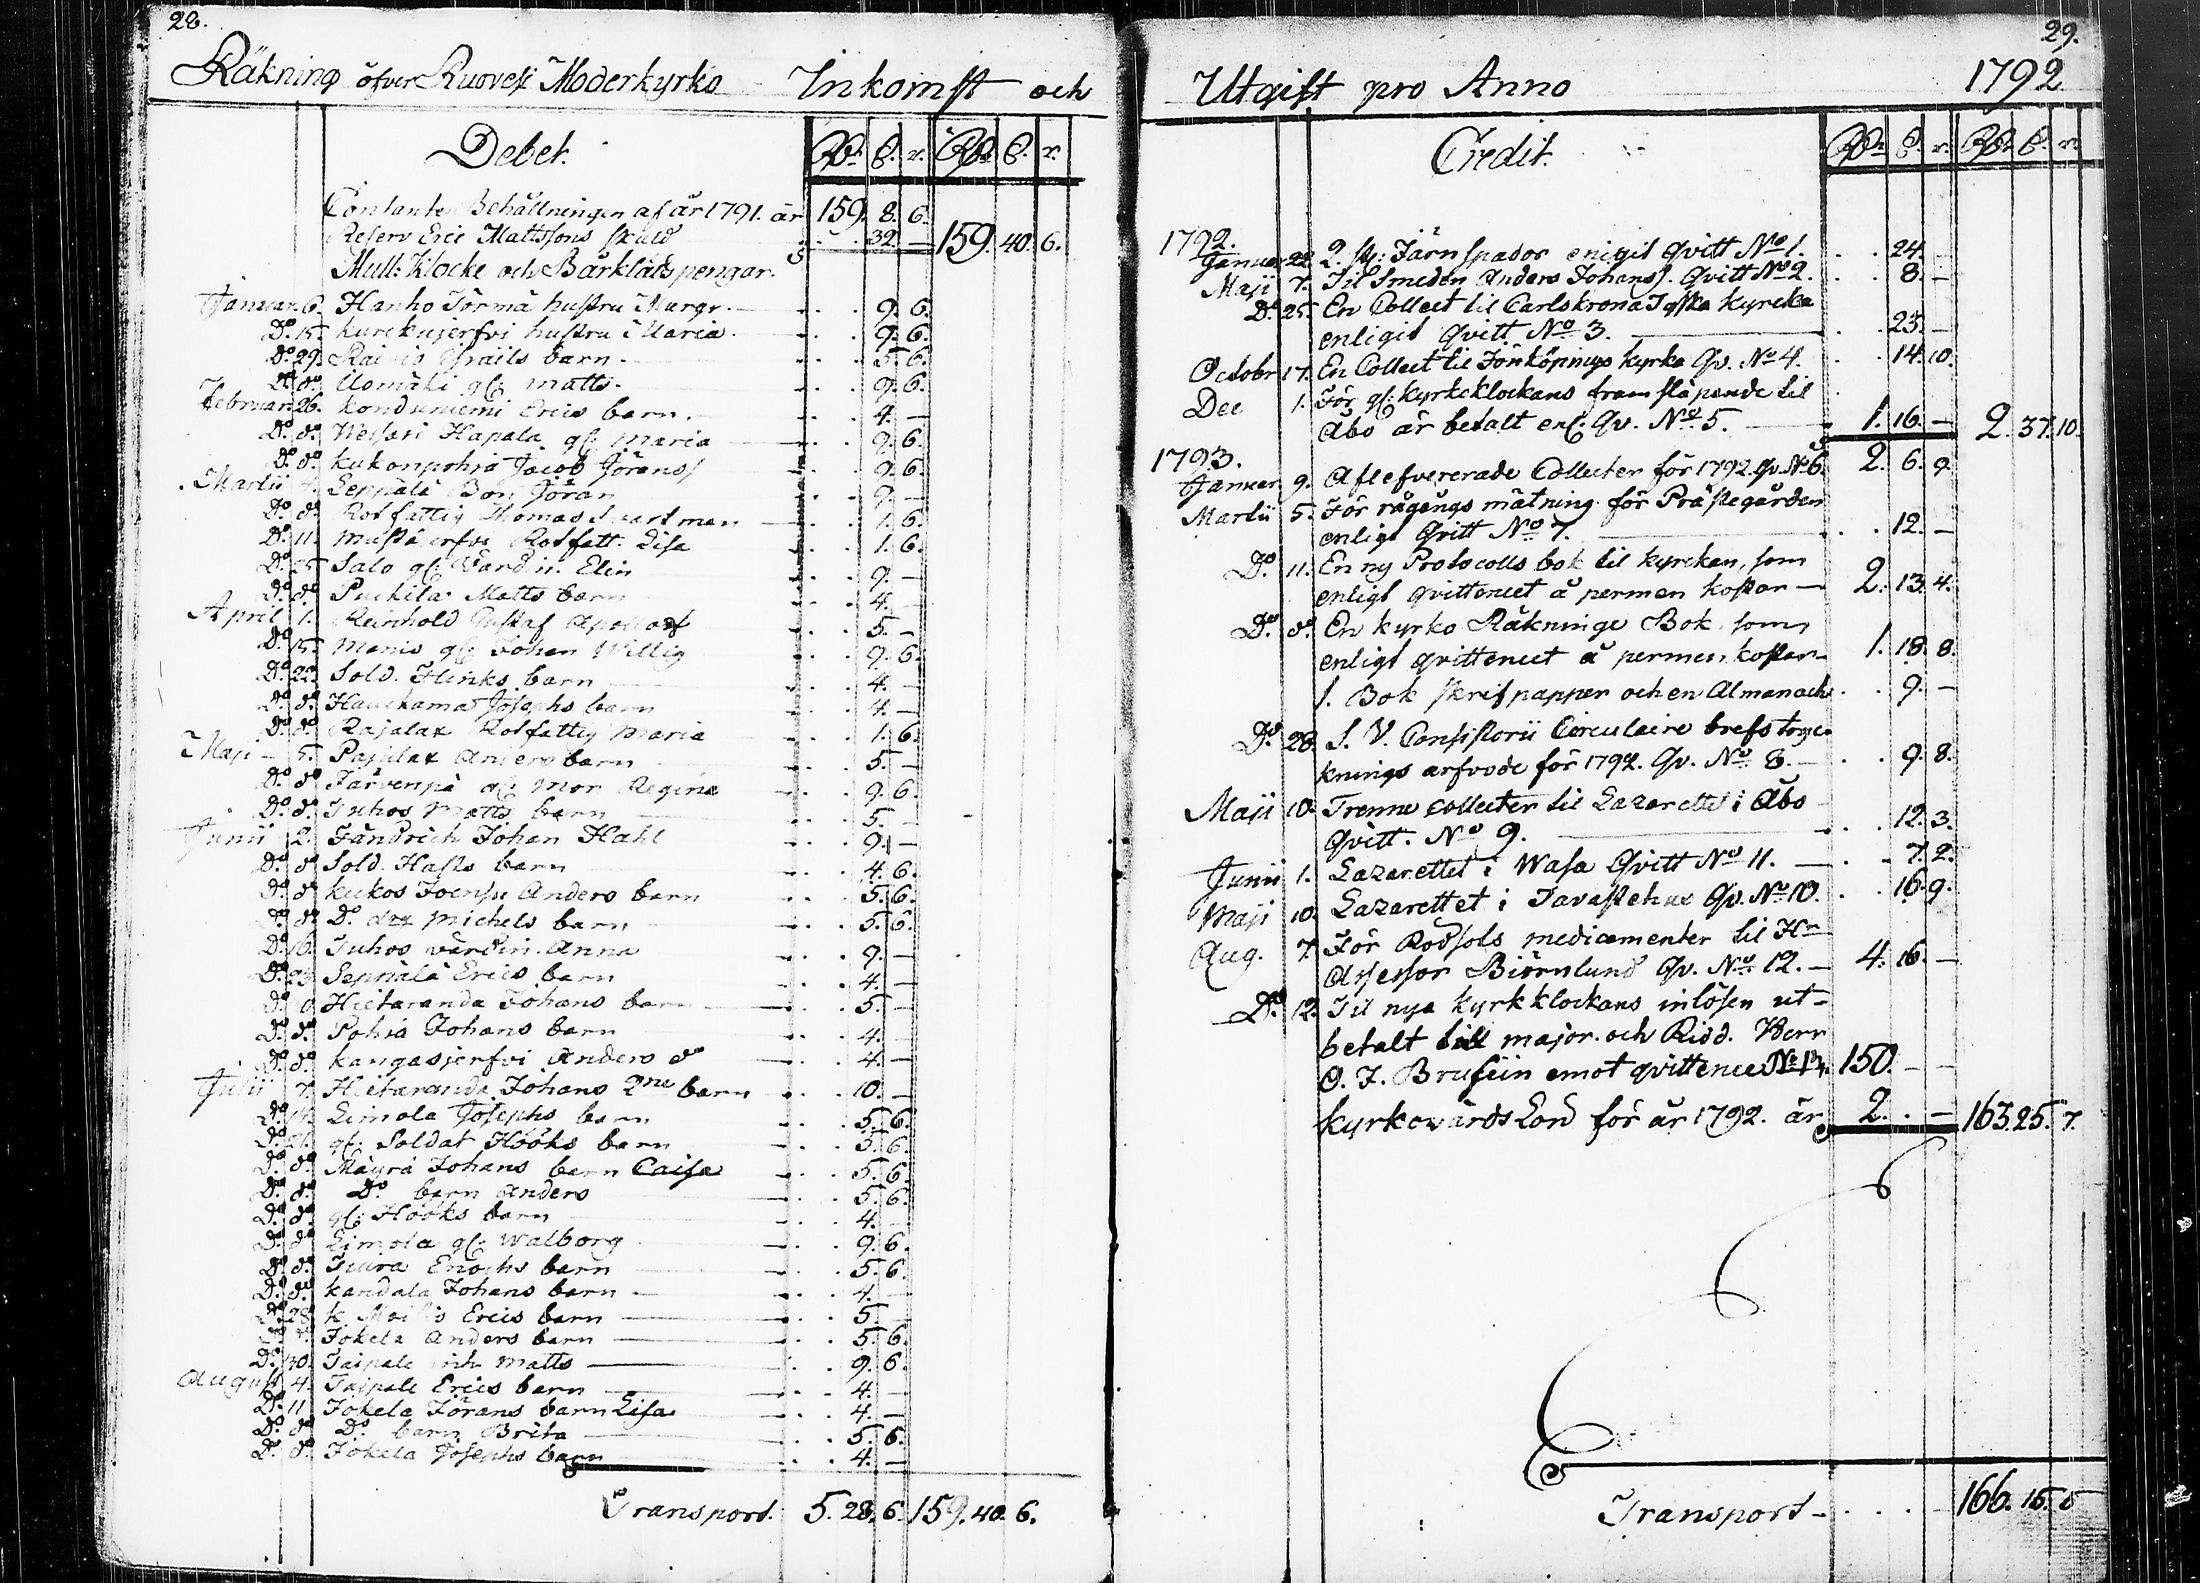 28.
Räkning öfver Ruovesi Moderkyrko Inkomst och
Debet. Rdr. S. r. Rdr. S. r.
Contanta Behållningen af år 1791. är 159. 8. 6.
Reserv Eric Mattssons skuld . . 32 — 159. 40. 6.
Mull: Klocke och Bårklädspengar.
Januar. 6. Hanho Jörmä hustru Margr. . . 9. 6.
Do. 15. Kurckujerfvi hustru Maria . . 9. 6.
Do. 29. barn . . 5. 6.
Do. do. Uomäki gl: Matts . . 9. 6.
Februar. 26. Konduniemi Erics barn . . 4. —
Do. do. Wessari Hapala gl: Maria . . 9. 6.
Do. do. Kukonpohja Jacob Jöranss . . 9. 6.
Martii 4. Seppälä Bon Jöran . . 9. —
Do. do. Rotfattig Thomas Svartman . . 1. 6.
Do. 11. Rotfatt. Lisa . . 1. 6.
Do. 25 Salo gl: Värdin. Elin . . 9. —
Do. do. Puchila Matts barn . . 4. —
April 1. Reinhold Gustaf . . 5. —
Do. 15. Manis gl: Johan Willig . . 9. 6.
Do. 22. Sold. Flinks barn . . 4. —
Do. do. Hauckama Josephs barn . . 4. —
Do. do. Rajalax Rotfattig Maria . . 1. 6.
Maji 5. Pajulax Anders barn . . 5. —
Do. do. Järvenpä gl: Mor Regina . . 9. 6.
Do. do. Juhos Matts barn . . 5. —
Junii 2. Fändrich Johan Hahl . . 9. —
Do. do. Sold. Hasts barn . . 4. 6.
Do. do. Kukos Joensu Anders barn . . 5. 6.
Do. do. Do. Michels barn . . 5. 6.
Do. 16. Juhos värdin. Anna . . 9. —
Do. 23. Seppälä Erics barn . . 4. —
Do. do. Hietaranda Johans barn . . 5. —
Do. do. Pohja Johans barn . . 4. —
Do. do. Kangasjerfvi Anders do . . 4. —
Julii 7. Hietaranda Johans 2ne barn . . 10. —
Do. 14. Limola Josephs barn . . 5. 6.
Do. 21. gl: Soldat Hööks barn . . 5. 6.
Do. do. Mäyrä Johans barn Caisa . . 5. 6.
Do. do. Do. barn Anders . . 5. 6.
Do. do. gl: Hööks barn . . 4. —
Do. do. Limola gl: Walborg . . 9. 6.
Do. do. Enochs barn . . 5. 6.
Do. do. Kandala Johans barn . . 4. —
Do. 28. K. Erics barn . . 5. —
Do. do. Jokela Anders barn . . 5. 6.
Do. 30. Taipale Matts . . 9. 6.
August 4. Taipale Erics barn . . 4. —
Do. 11. Jokela Jörans barn Lisa . . 4. —
Do. do. Do. barn Brita . . 5. 6.
Do. do. Jokela Josephs barn . . 4. —
Transport. 5. 28. 6. 159. 40. 6.
29.
Utgift pro Anno 1792
Credit. Rdr. S. r. Rdr. S. r.
1792.
Januar. 22. 2. st: Järn spador enigit Qvitt No 1. . . 24. —
Maji 7. Til Smeden Anders Johanss. Qvitt No 2. . . 8. —
Do. 25. En Collect til Carlskrona Tyska kyrcka
enligit Qvitt No 3. . . 23. —
Octobr. 17. En Collect til Jönköpings kyrka Qv. No 4. . . 14. 10.
Dec 1. För gl: kyrkoklockans framsläpande til
Åbo är betalt enl: Qv. No 5. 1. 16. — 2. 37. 10.
1793.
Januar. 9. Aflefvererade Collecter för 1792. Qv. No 6. 2. 6. 9.
Martii 5. För rågångs mätning för Prästegården
enligt Qvitt No 7. . . 12. —
Do. 11. En ny Protocolls bok til kyrckan, som
enligt qvittencet å permen kostar — 2. 13. 4.
Do. do. En kyrko Räkninge Bok, som
enligt qvittencet å permen kostar — 1. 18. 8.
1. Bok skrifpapper och en Almanach . . 9. —
Do. 28. S. V. Consistorii Circulaire brefs
knings arfvode för 1792. Qv. No 8. . . 9. 8.
Maji 10. Trenne collecter til Lazarettet i Åbo
Qvitt. No 9. . . 12. 3.
Junii 1. Lazarettet i Wasa Qvitt No 11. . . 7. 2.
Maji 10. Lazarettet i Tavastehus Qv. No 10. . . 16. 9.
Aug. 7. För Rodsols medicamenter til Hr
Assessor Biörnlund Qv. No 12. — 4. 16. —
Do. 12. Til nya kyrkklockans inlösen ut-
betalt till major och Ridd. Herr
O. J. Brusiin emot qvittence No 13. 150. — —
Kyrkovärds Lön för år 1792. är 2. . — 163. 25. 7.
Transport . . . — 166. 15. 5